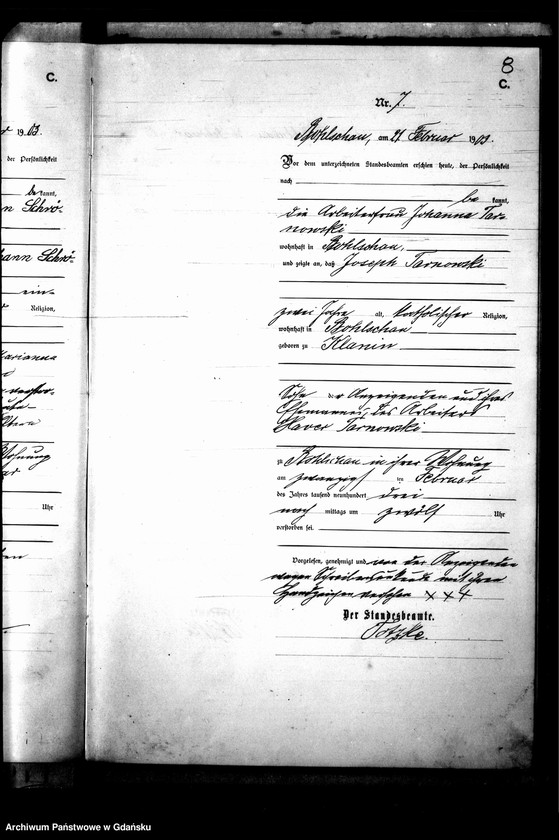 C.
r 1903.
der Persönlichkeit
be kannt,
n Schrö-
ann Schrö-
ein-
Religion,
Marianna
Wohnung
Uhr
8
C.
Nr. 7
Bohlschau, am 21 Februar 1903.
Vor dem unterzeichneten Standesbeamten erschien heute, der Persönlichkeit
nach
be kannt,
die Arbeiterfrau Johanna Tar-
nowski
wohnhaft in Bohlschau,
und zeigte an, daß Joseph Tarnowski
zwei Jahre alt, katholischer Religion,
wohnhaft in Bohlschau
geboren zu Klanin
Sohn der Anzeigenden und ihres
Ehemannes, des Arbeiters
Xaver Tarnowski
zu Bohlschau in ihrer Wohnung
am zwanzigsten Februar
des Jahres tausend neunhundert drei
nach mittags um zwölf Uhr
verstorben sei.
Vorgelesen, genehmigt und von der Anzeigenden
wegen Schreibensunkunde mit ihren
Handzeichen versehen x x x
Der Standesbeamte.
Totzke.
Archiwum Państwowe w Gdańsku